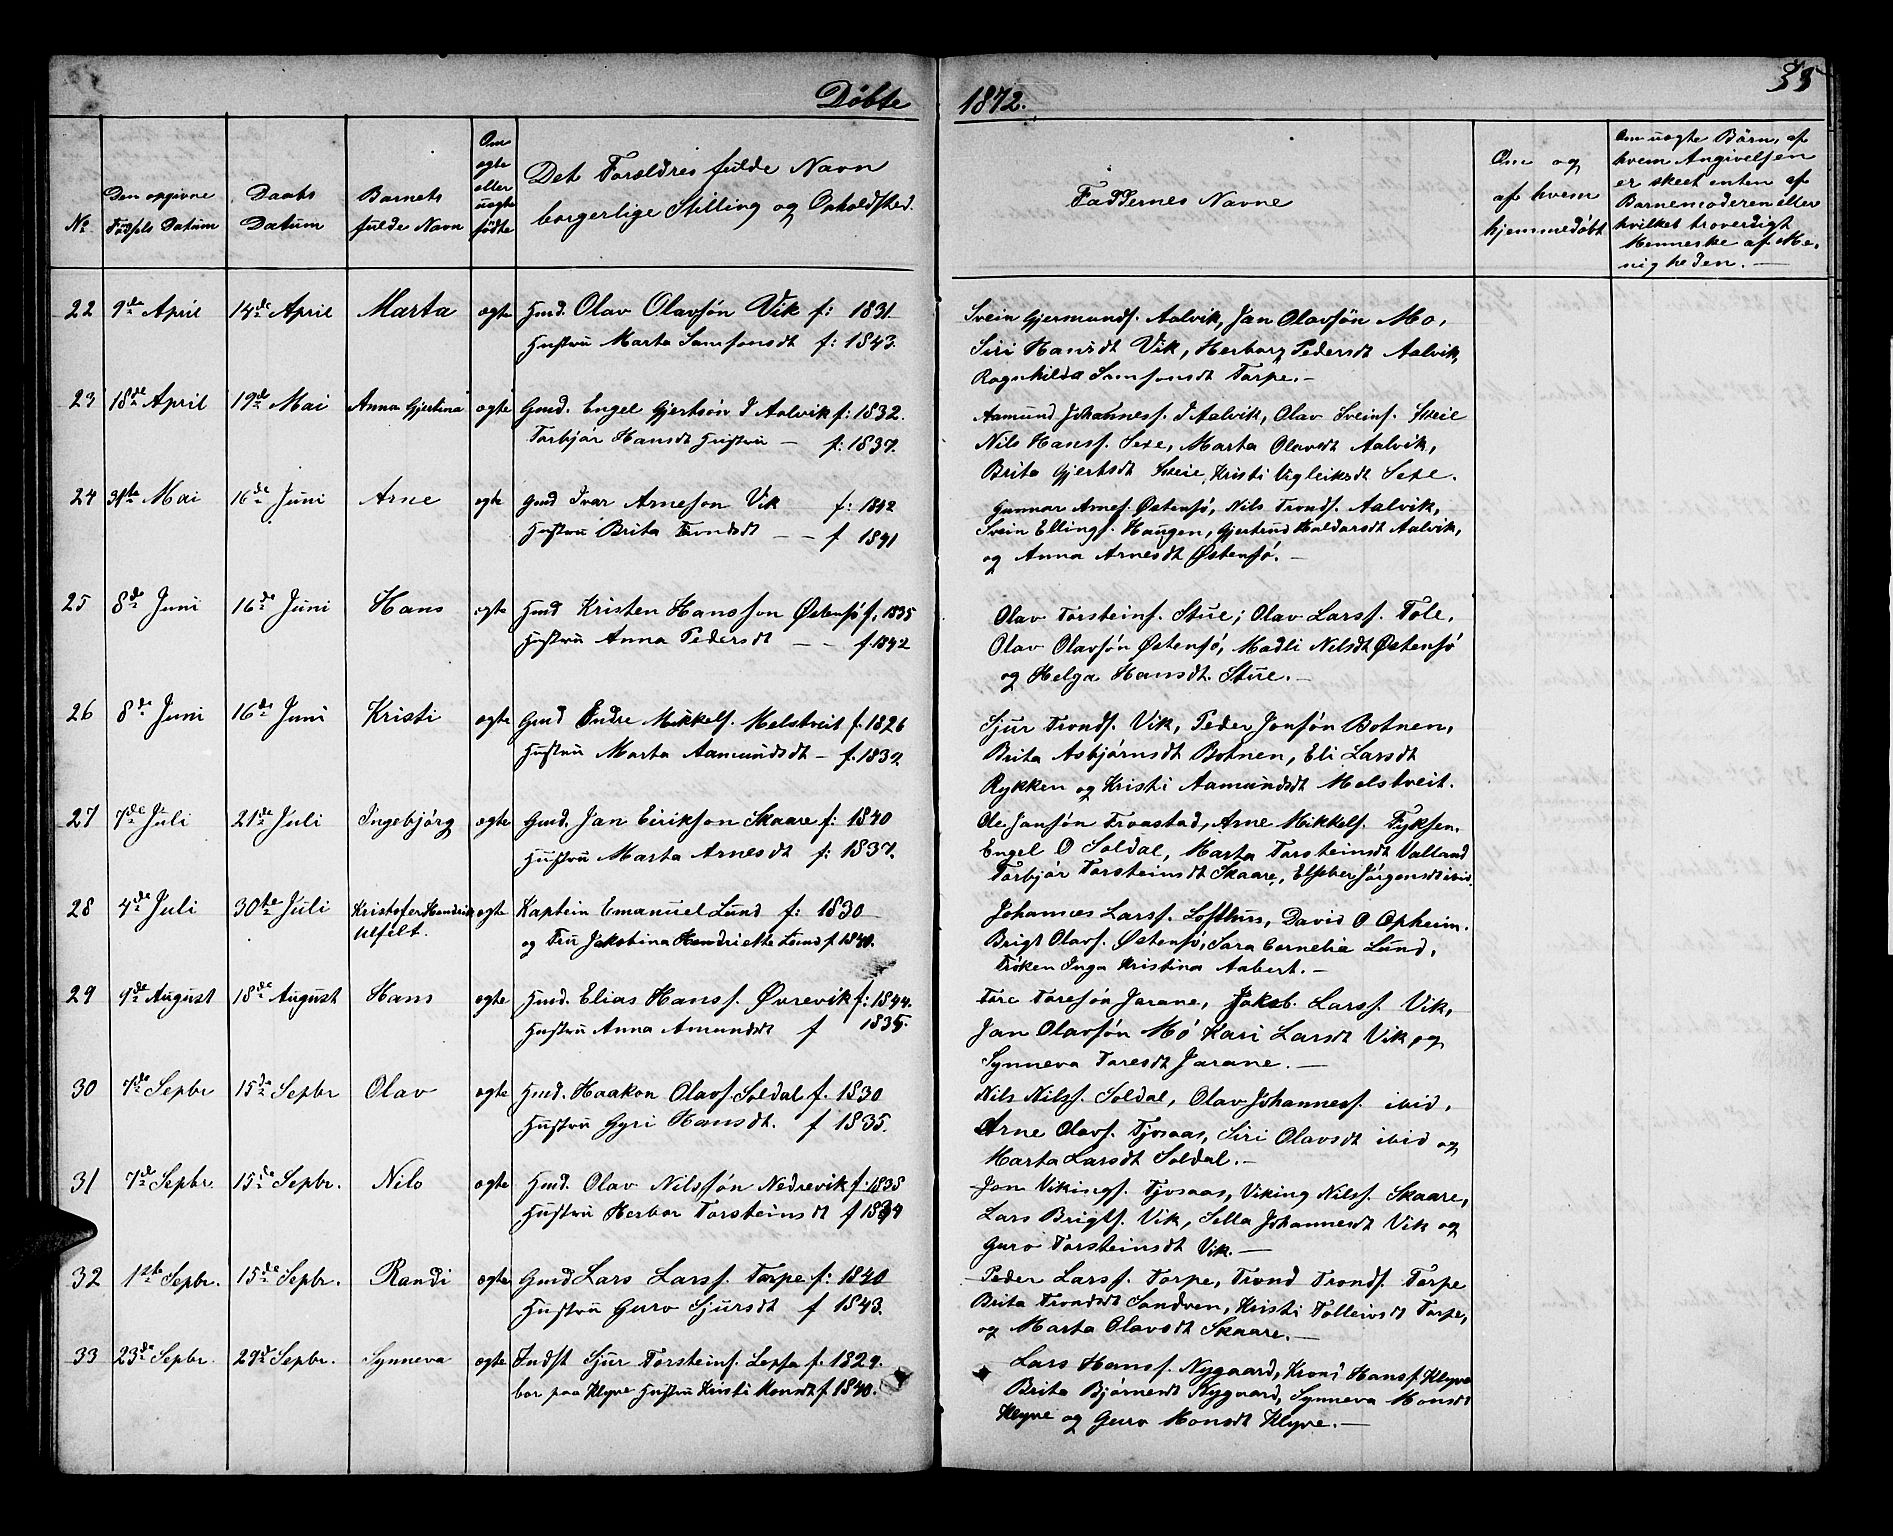 Döbte 1872.
33
No
Den opgivne
Fødsels Datum
Daabs
Datum
Barnets
fulde Navn
Om
ægte
eller
uægte
födte
Det Forældres fulde Navn
borgerlige Stilling og Opholdsted.
Faddernes Navne
Om og
af hvem
hjemmedøbt
Om uægte Børn, af
hvem Angivelsen
er skeet enten af
Barnemoderen eller
hvilket troverdigt
Menneske af Me-
nigheden. —
22 9de April 14de April Marta ægte Gmd. Olav Olavsön Vik f: 1831
Hustru Marta Samsonsdt f: 1843.
Svein Gjermunds. Aalvik, Jan Olavsön Mo,
Siri Hansdt Vik, Herborg Pedersdt Aalvik,
Ragnhilda Samsonsdt Torpe. —
23 18de April 19de Mai Anna Gjertina ægte Gmd. Engel Gjertsön I Aalvik f: 1832.
Torbjør Hansdt Hustru — f: 1837.
Aamund Johanness. I Aalvik, Olav Sveins. Steie
Nils Hanss. Sexe, Marta Olavsdt Aalvik,
Brita Gjertsdt Steie, Kristi Vigleiksdt Sexe.
24 31te Mai 16de Juni Arne ægte Gmd Ivar Arneson Vik f: 1842
Hustru Brita Trondsdt — — f 1841
Gunnar Arnes. Østensø, Nils Tronds. Aalvik,
Svein Ellings. Haugen, Gjertrud Haldorsdt Aalvik,
og Anna Arnesdt Østensø. —
25 8de Juni 16de Juni Hans ægte Gmd Kristen Hansson Østensø f. 1835
Hustru Anna Pedersdt — — f. 1842
Olav Torsteins. Stue; Olav Larss. Tole,
Olav Olavsön Østensø, Madli Nilsdt Østensø
og Helga Hansdt Stue. —
26 8de Juni 16de Juni Kristi ægte Gmd Endre Mikkels. Melstveit f. 1826
Hustru Marta Aamundsdt — f. 1832
Sjur Tronds. Vik, Peder Jonsön Botnen,
Brita Asbjørnsdt Botnen, Eli Larsdt
Rykken og Kristi Aamundsdt Melstveit.
27 7de Juli 21de Juli Ingebjørg ægte Gmd. Jan Eirikson Skaare f: 1840
Hustru Marta Arnesdt f: 1837.
Ole Jansön Traastad, Arne Mikkels. Fyksen.
Engel O Soldal, Marta Torsteinsdt Valland
Torbjør Torsteinsdt Skaare, Elsber Jørgensdt ibid.
28 4de Juli 30te Juli Kristofer Hendrik
Ulfelt. ægte Kaptein Emanuel Lund f: 1830
og Fru Jakobina Hendriette Lund f 1840.
Johannes Larss. Lofthus, David O Opheim.
Brigt Olavs. Østensø, Sara Cornelia Lund,
Frøken Inga Kristina Aabert. —
29 9de August 18de August Hans ægte Gmd. Elias Hanss. Øvrevik f: 1844.
Hustru Anna Amundsdt f 1835.
Tore Toresön Jarane, Jakob. Larss. Vik,
Jan Olavsön Mo Kari Larsdt Vik, og
Synneva Toresdt Jarane. —
30 7de Sepbr 15de Sepbr Olav ægte Gmd. Haakon Olavs. Soldal f. 1830
Hustru Gyri Hansdt. f 1835.
Nils Nilss. Soldal, Olav Johanness. ibid,
Arne Olavs. Tjosaas, Siri Olavsdt ibid og
Marta Larsdt Soldal. —
31 7de Sepbr. 15de Sepbr. Nils ægte Gmd. Olav Nilssön Nedrevik f. 1838
Hustru Herbor Torsteinsdt f 1834
Jan Vikings. Tjosaas, Viking Nilss. Skaare,
Lars Brigts. Vik, Sella Johannesdt Vik og
Guro Torsteinsdt Vik. —
32 1ste Sepbr. 15de Sepbr. Randi ægte Gmd Lars Larss. Torpe f: 1840
Hustru Guro Sjursdt f 1843.
Peder Larss. Torpe, Trond Tronds. Torpe
Brita Trondsdt Sandven, Kristi Tolleivsdt Torpe,
og Marta Olavsdt Skaare. —
33 23de Sepbr. 29de Sepbr. Synneva ægte Indst Sjur Torsteins. Lepsa f. 1829.
bor paa Klyve Hustru Kristi Monsdt f 1840.
Lars Hanss. Nygaard, Hans f Klyve
Brita Bjørnesdt Nygaard, Synneva Monsdt
Klyve og Guro Monsdt Klyve. —